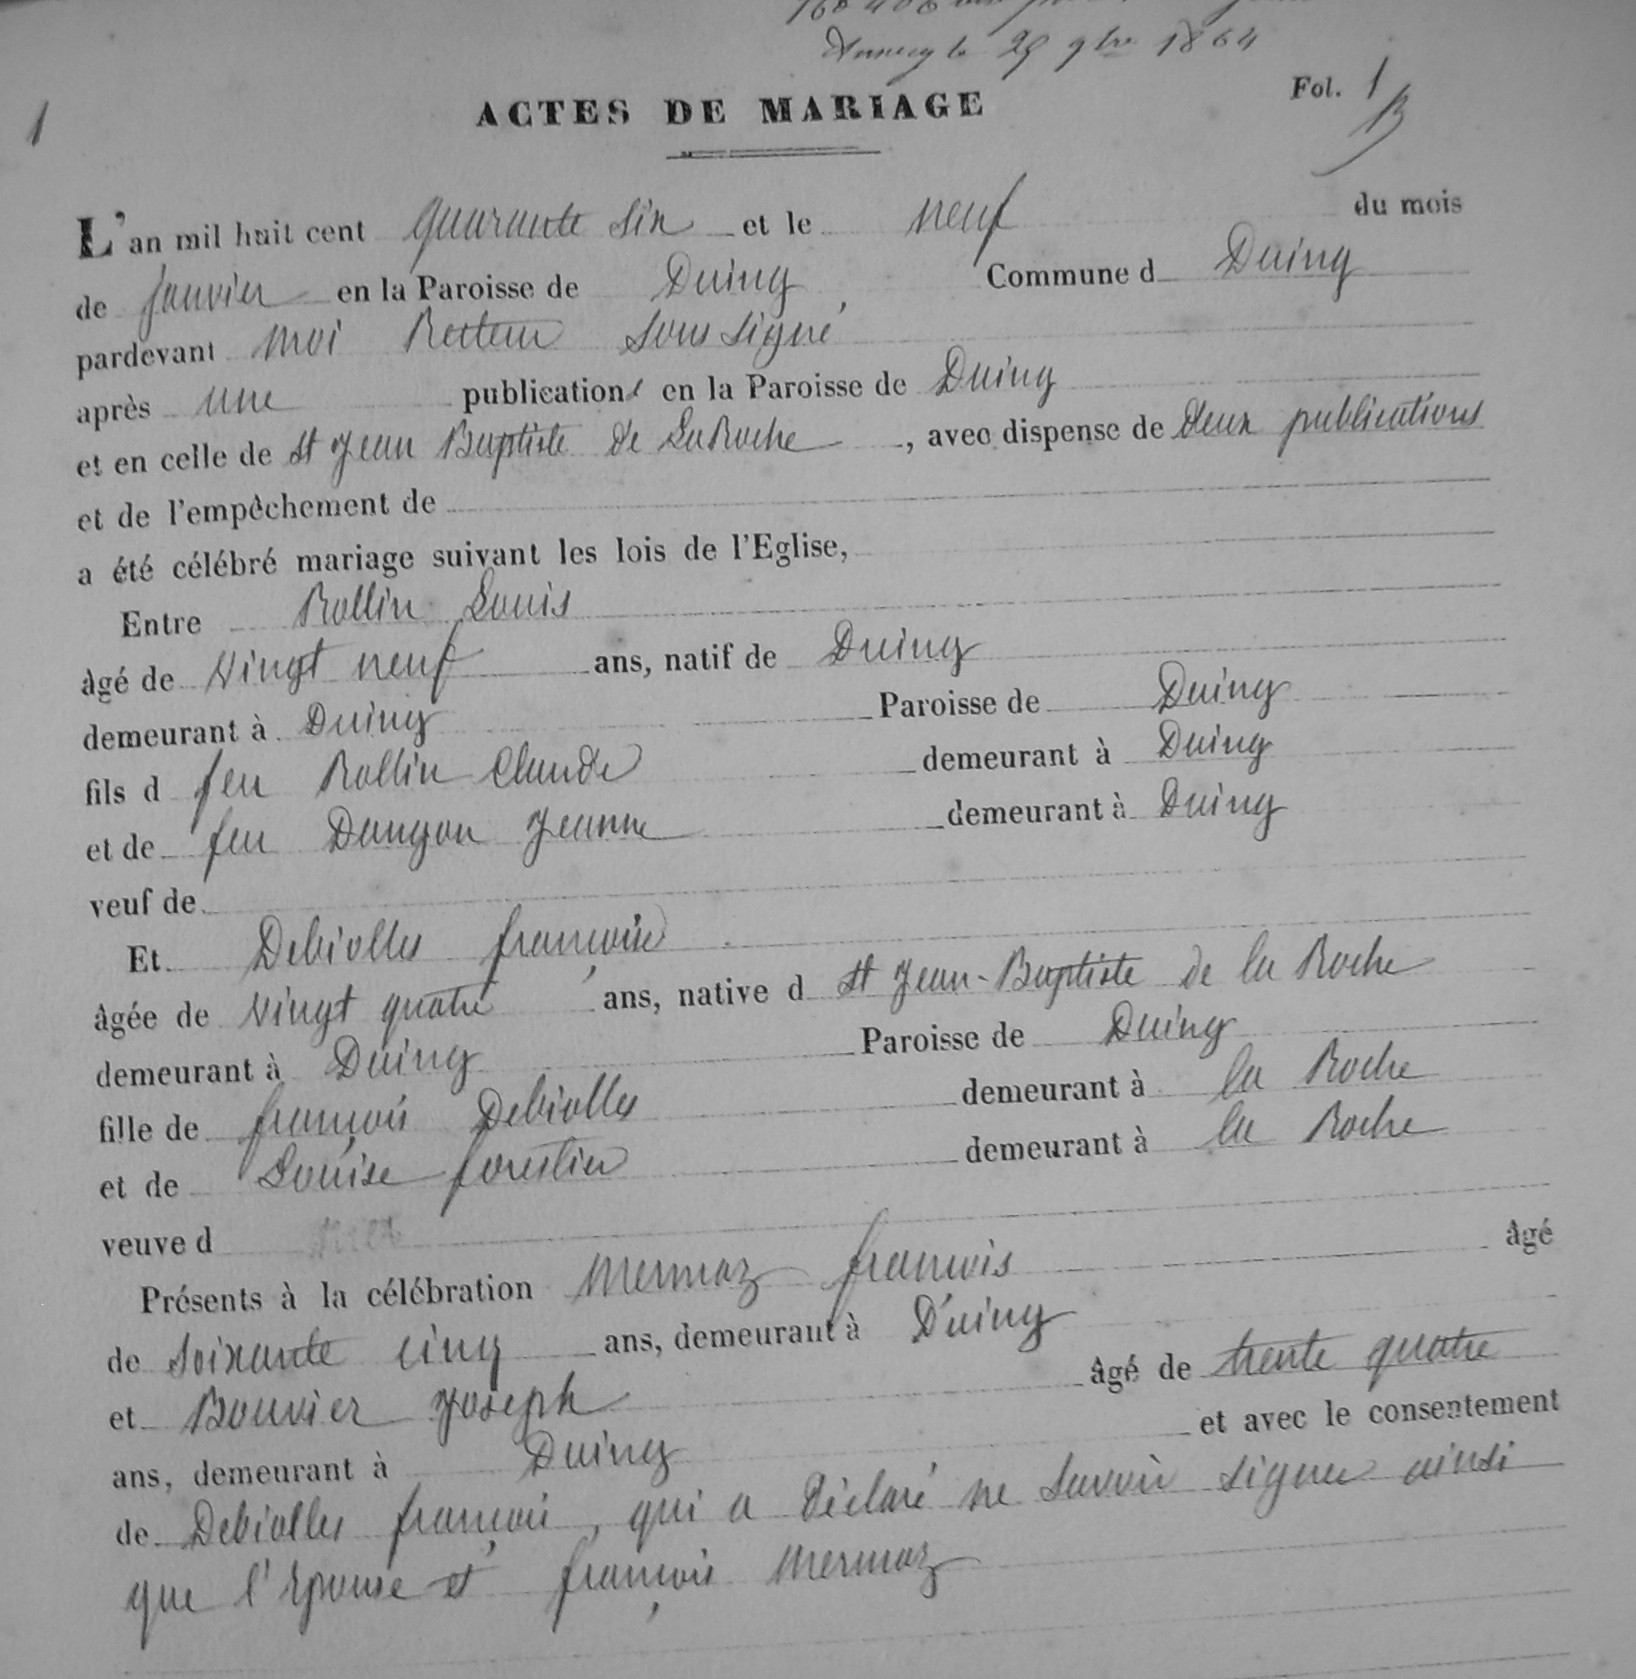 Annecy le 29 9bre 1864
1
ACTES DE MARIAGE
Fol. 1
L'an mil huit cent quarante six et le neuf du mois
de janvier en la Paroisse de Duing Commune d Duing
pardevant moi Recteur sous signé
après une publication en la Paroisse de Duing
et en celle de st Jean Baptiste de LaRoche, avec dispense de deux publications
et de l'empêchement de
a été célébré mariage suivant les lois de l'Eglise,
Entre Rollin Louis
âgé de vingt neuf ans, natif de Duing
demeurant à Duing Paroisse de Duing
fils d feu Rollin Claude demeurant à Duing
et de feu Dangon Jeanne demeurant à Duing
veuf de
Et Debiolles françoise
âgée de vingt quatre ans, native d st Jean-Baptiste de la Roche
demeurant à Duing Paroisse de Duing
fille de françois Debiolles demeurant à la Roche
et de Louise forestier demeurant à la Roche
veuve d
Présents à la célébration Mermaz francois âgé
de soixante cinq ans, demeurant à Duing
et Bouvier Joseph âgé de trente quatre
ans, demeurant à Duing et avec le consentement
de Debiolles françois, qui a déclaré ne savoir signer ainsi
que l'épouse et françois Mermaz